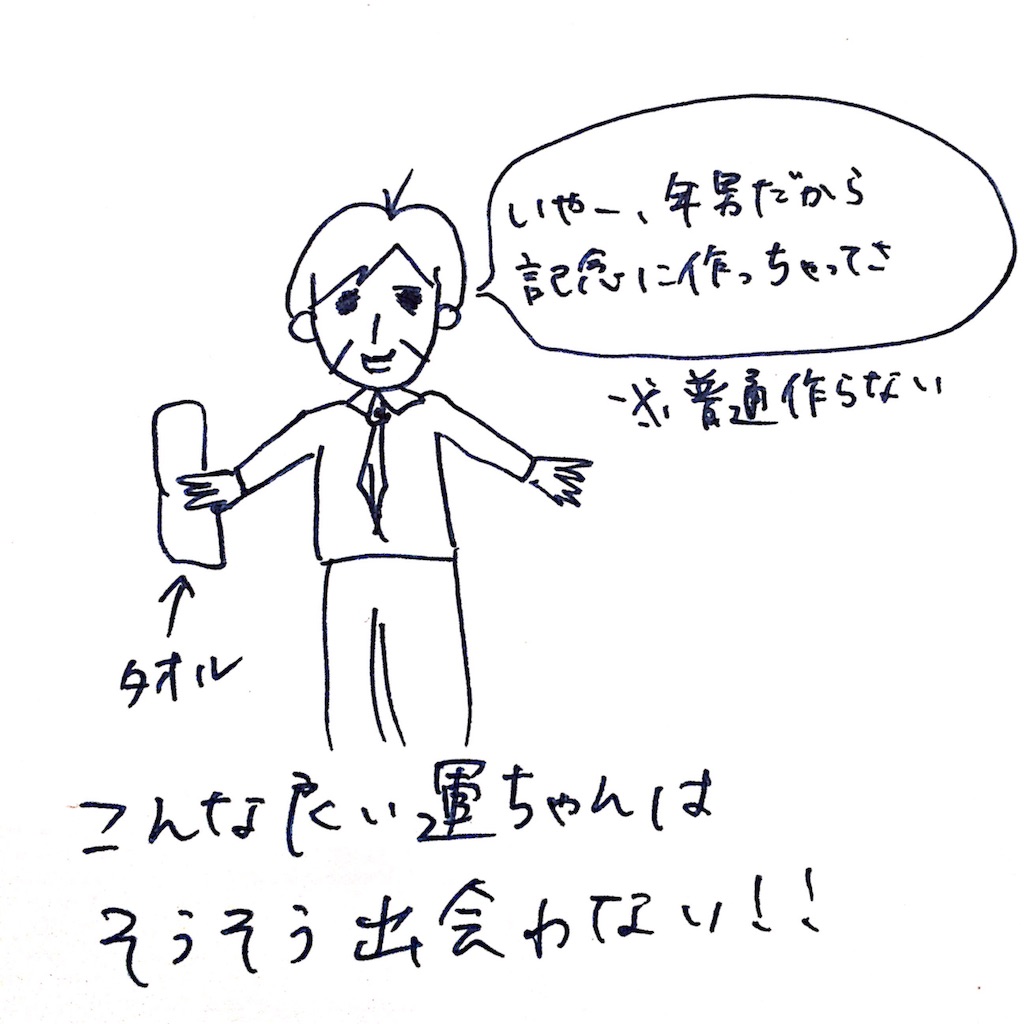 いやー、年男だから
記念に作っちゃってさ
※普通作らない
タオル
こんな良い運ちゃんは
そうそう出会わない!!